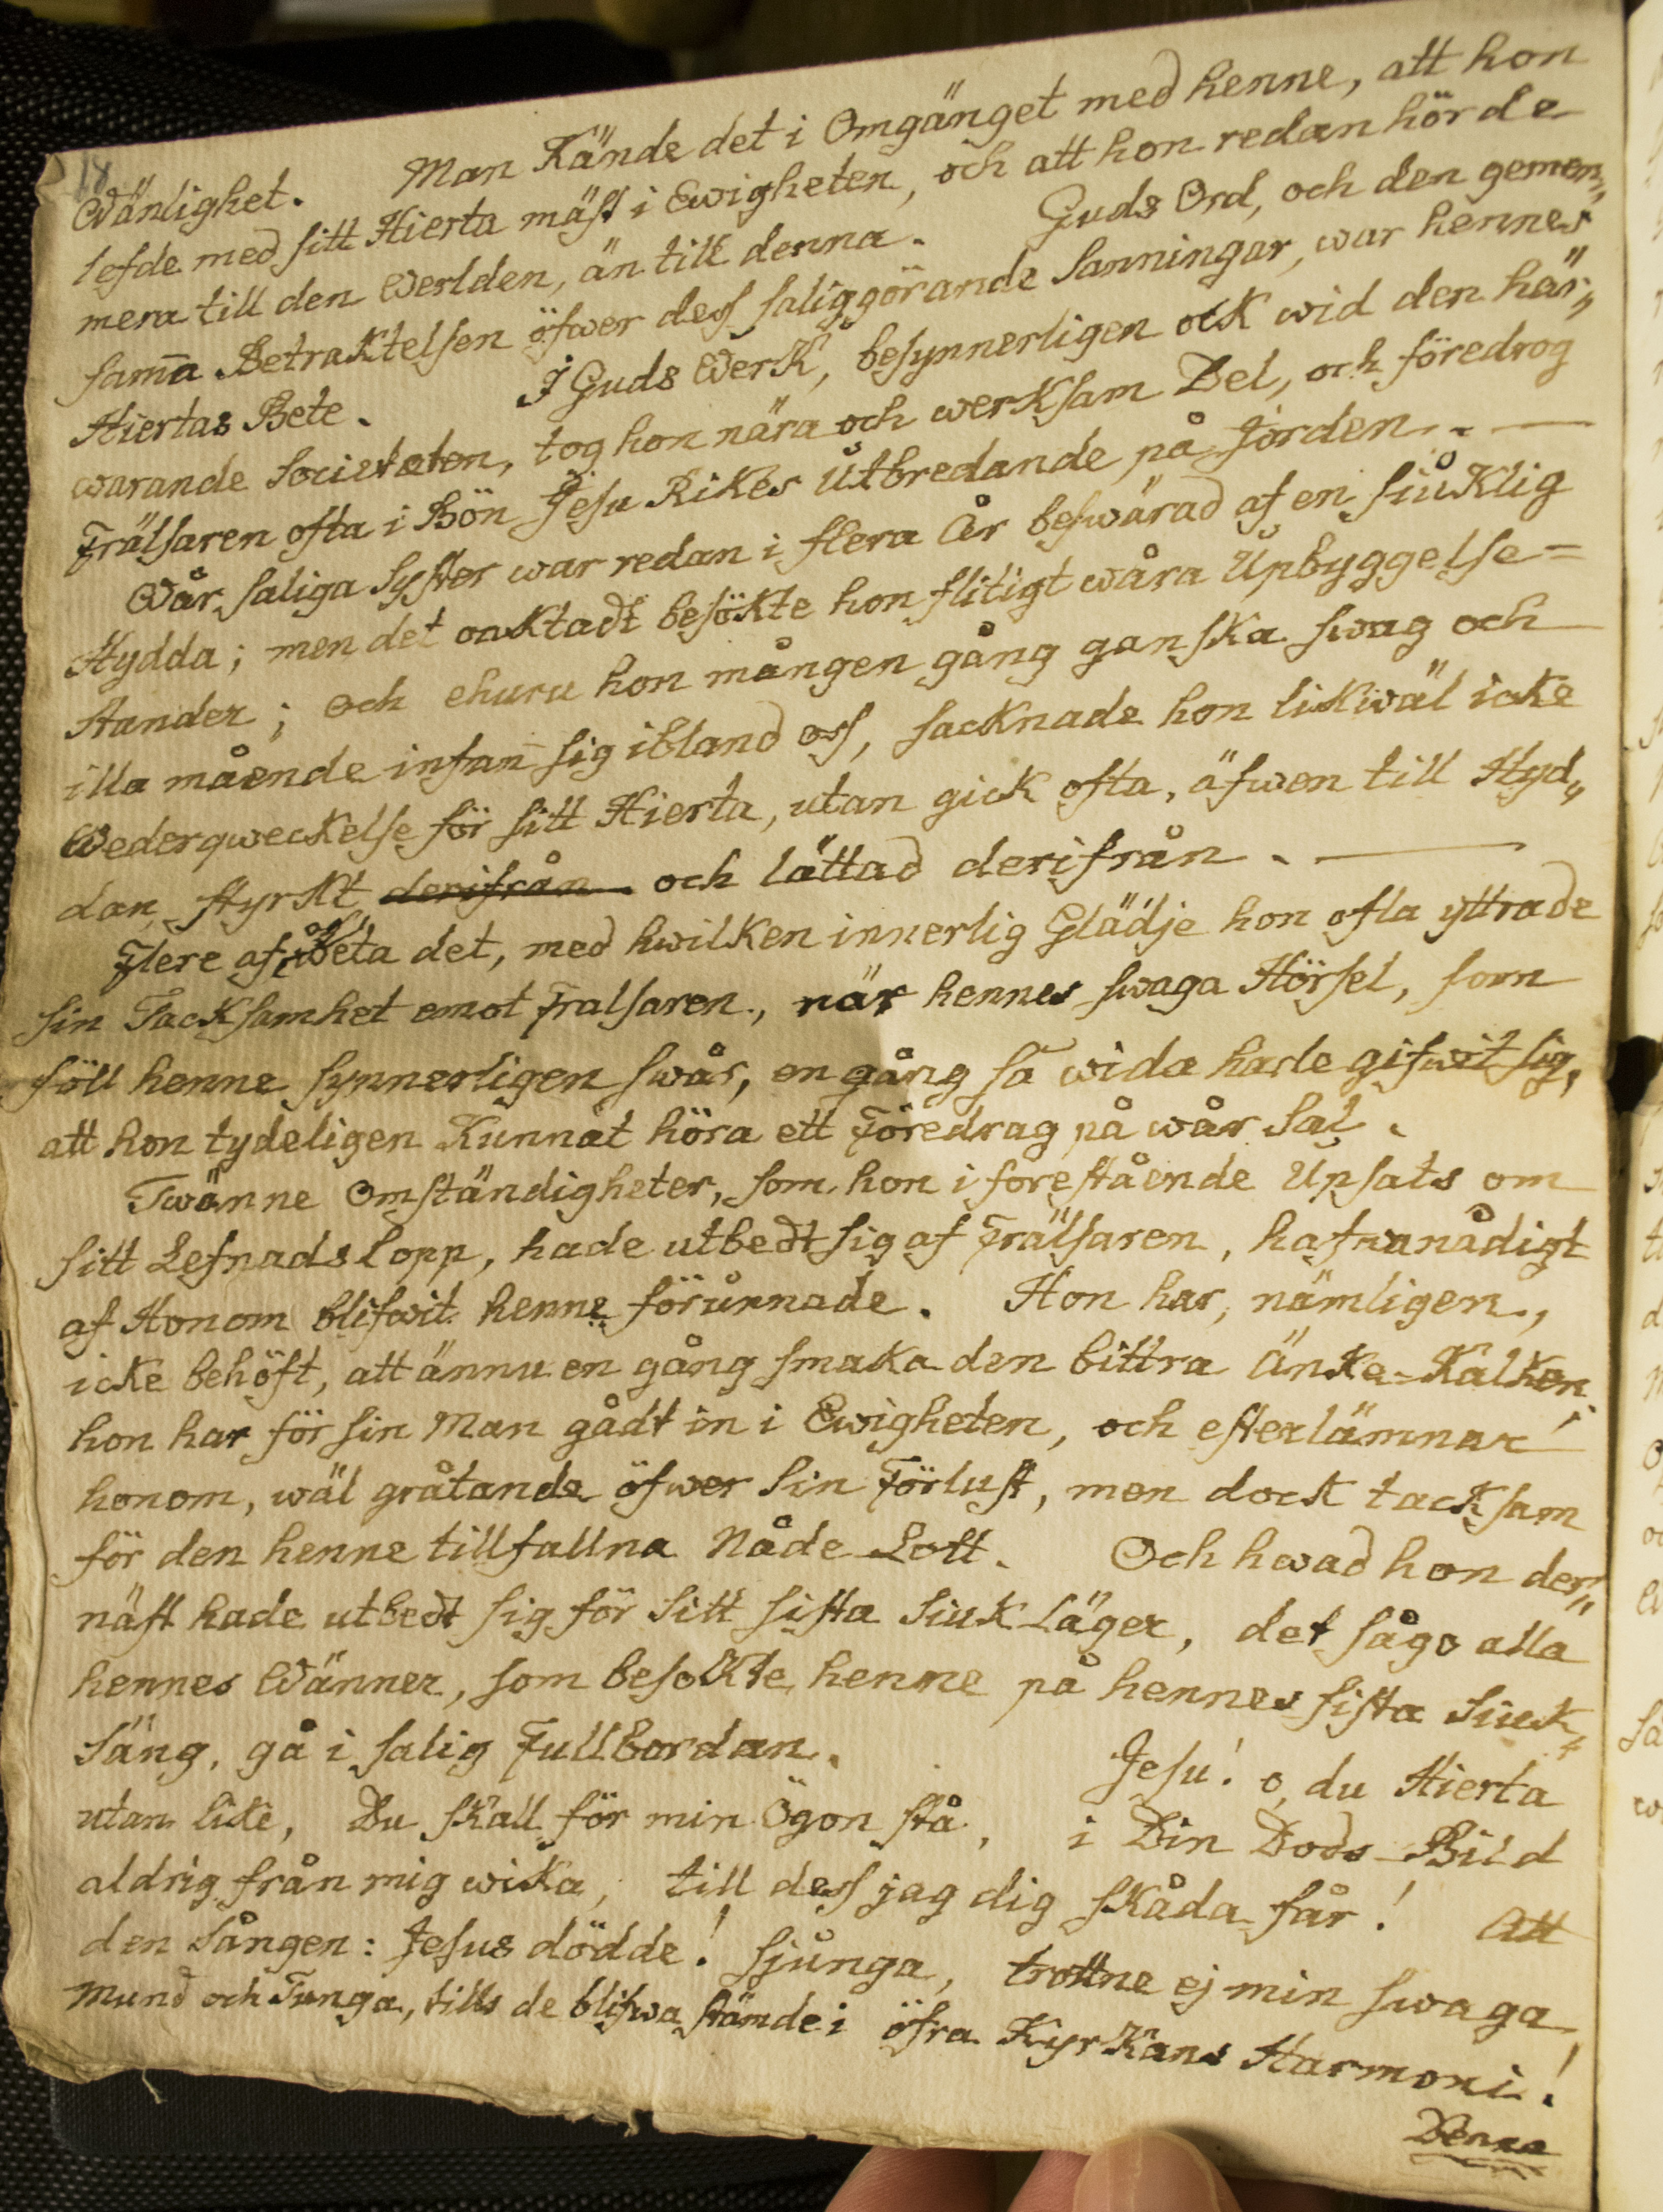 18
Wänlighet. Man Kände det i Omgänget med henne, att hon
lefde med sitt Hierta mäst i Ewigheten, och att hon redan hörde
mera till den Werlden, än till denna. Guds Ord, och den gemen„
sam̄a Betraktelsen öfwer dess saliggörande Sanningar, war hennes
Hiertas Bete. I Guds Werk, besynnerligen ock wid den här„
warande Societeten, tog hon nära och werksam Del, och föredrog
Frälsaren ofta i Bön Jesu Rikes Utbredande på Jorden. —
Wår saliga Syster war redan i flera År beswärad af en siuklig
Hydda; men det oaktadt besökte hon flitigt wåra Upbyggelse=
stunder; och ehuru hon mången gång ganska swag och
illa mående infan̄ sig ibland oss, sacknade hon likwäl icke
Wederqweckelse för sitt Hierta, utan gick ofta, äfwen till Hyd„
dan, styrkt derifrån och lättad derifrån. —
Flere af oss weta det, med hwilken innerlig Glädje hon ofta yttrade
sin Tacksamhet emot Frälsaren, när hennes swaga Hörsel, som
föll henne synnerligen swår, en gång så wida hade gifwit sig,
att hon tydeligen Kunnat höra ett Föredrag på wår Sal.
Twänne Omständigheter, som hon i forestående Upsats om
sitt Lefnads Lopp, hade utbedt sig af Frälsaren, hafwa nådigt
af Honom blifwit henne förunnade. Hon har, nämligen,
icke behöft, att ännu en gång smaka den bittra Änke=Kalken;
hon har för sin Man gådt in i Ewigheten, och efterlämnar
honom, wäl gråtande öfwer sin Förlust, men dock tacksam
för den henne tillfallna Nåde Lott. Och hwad hon der„
näst hade utbedt sig för sitt sista Siuk Läger, det sågo alla
hennes Wänner, som besökte henne på hennes sista Siuk„
Säng, gå i salig Fullbordan. Jesu! o, du Hierta
utan like, Du skall för min Ögon stå, i Din Dods Bild
aldrig från mig wika, till dess jag dig skåda får! Att
den Sången: Jesus dödde! sjunga, trottne ej min swaga
Mund och Tunga, tills de blifwa stämde i öfra Kyrkans Harmoni!
Denna